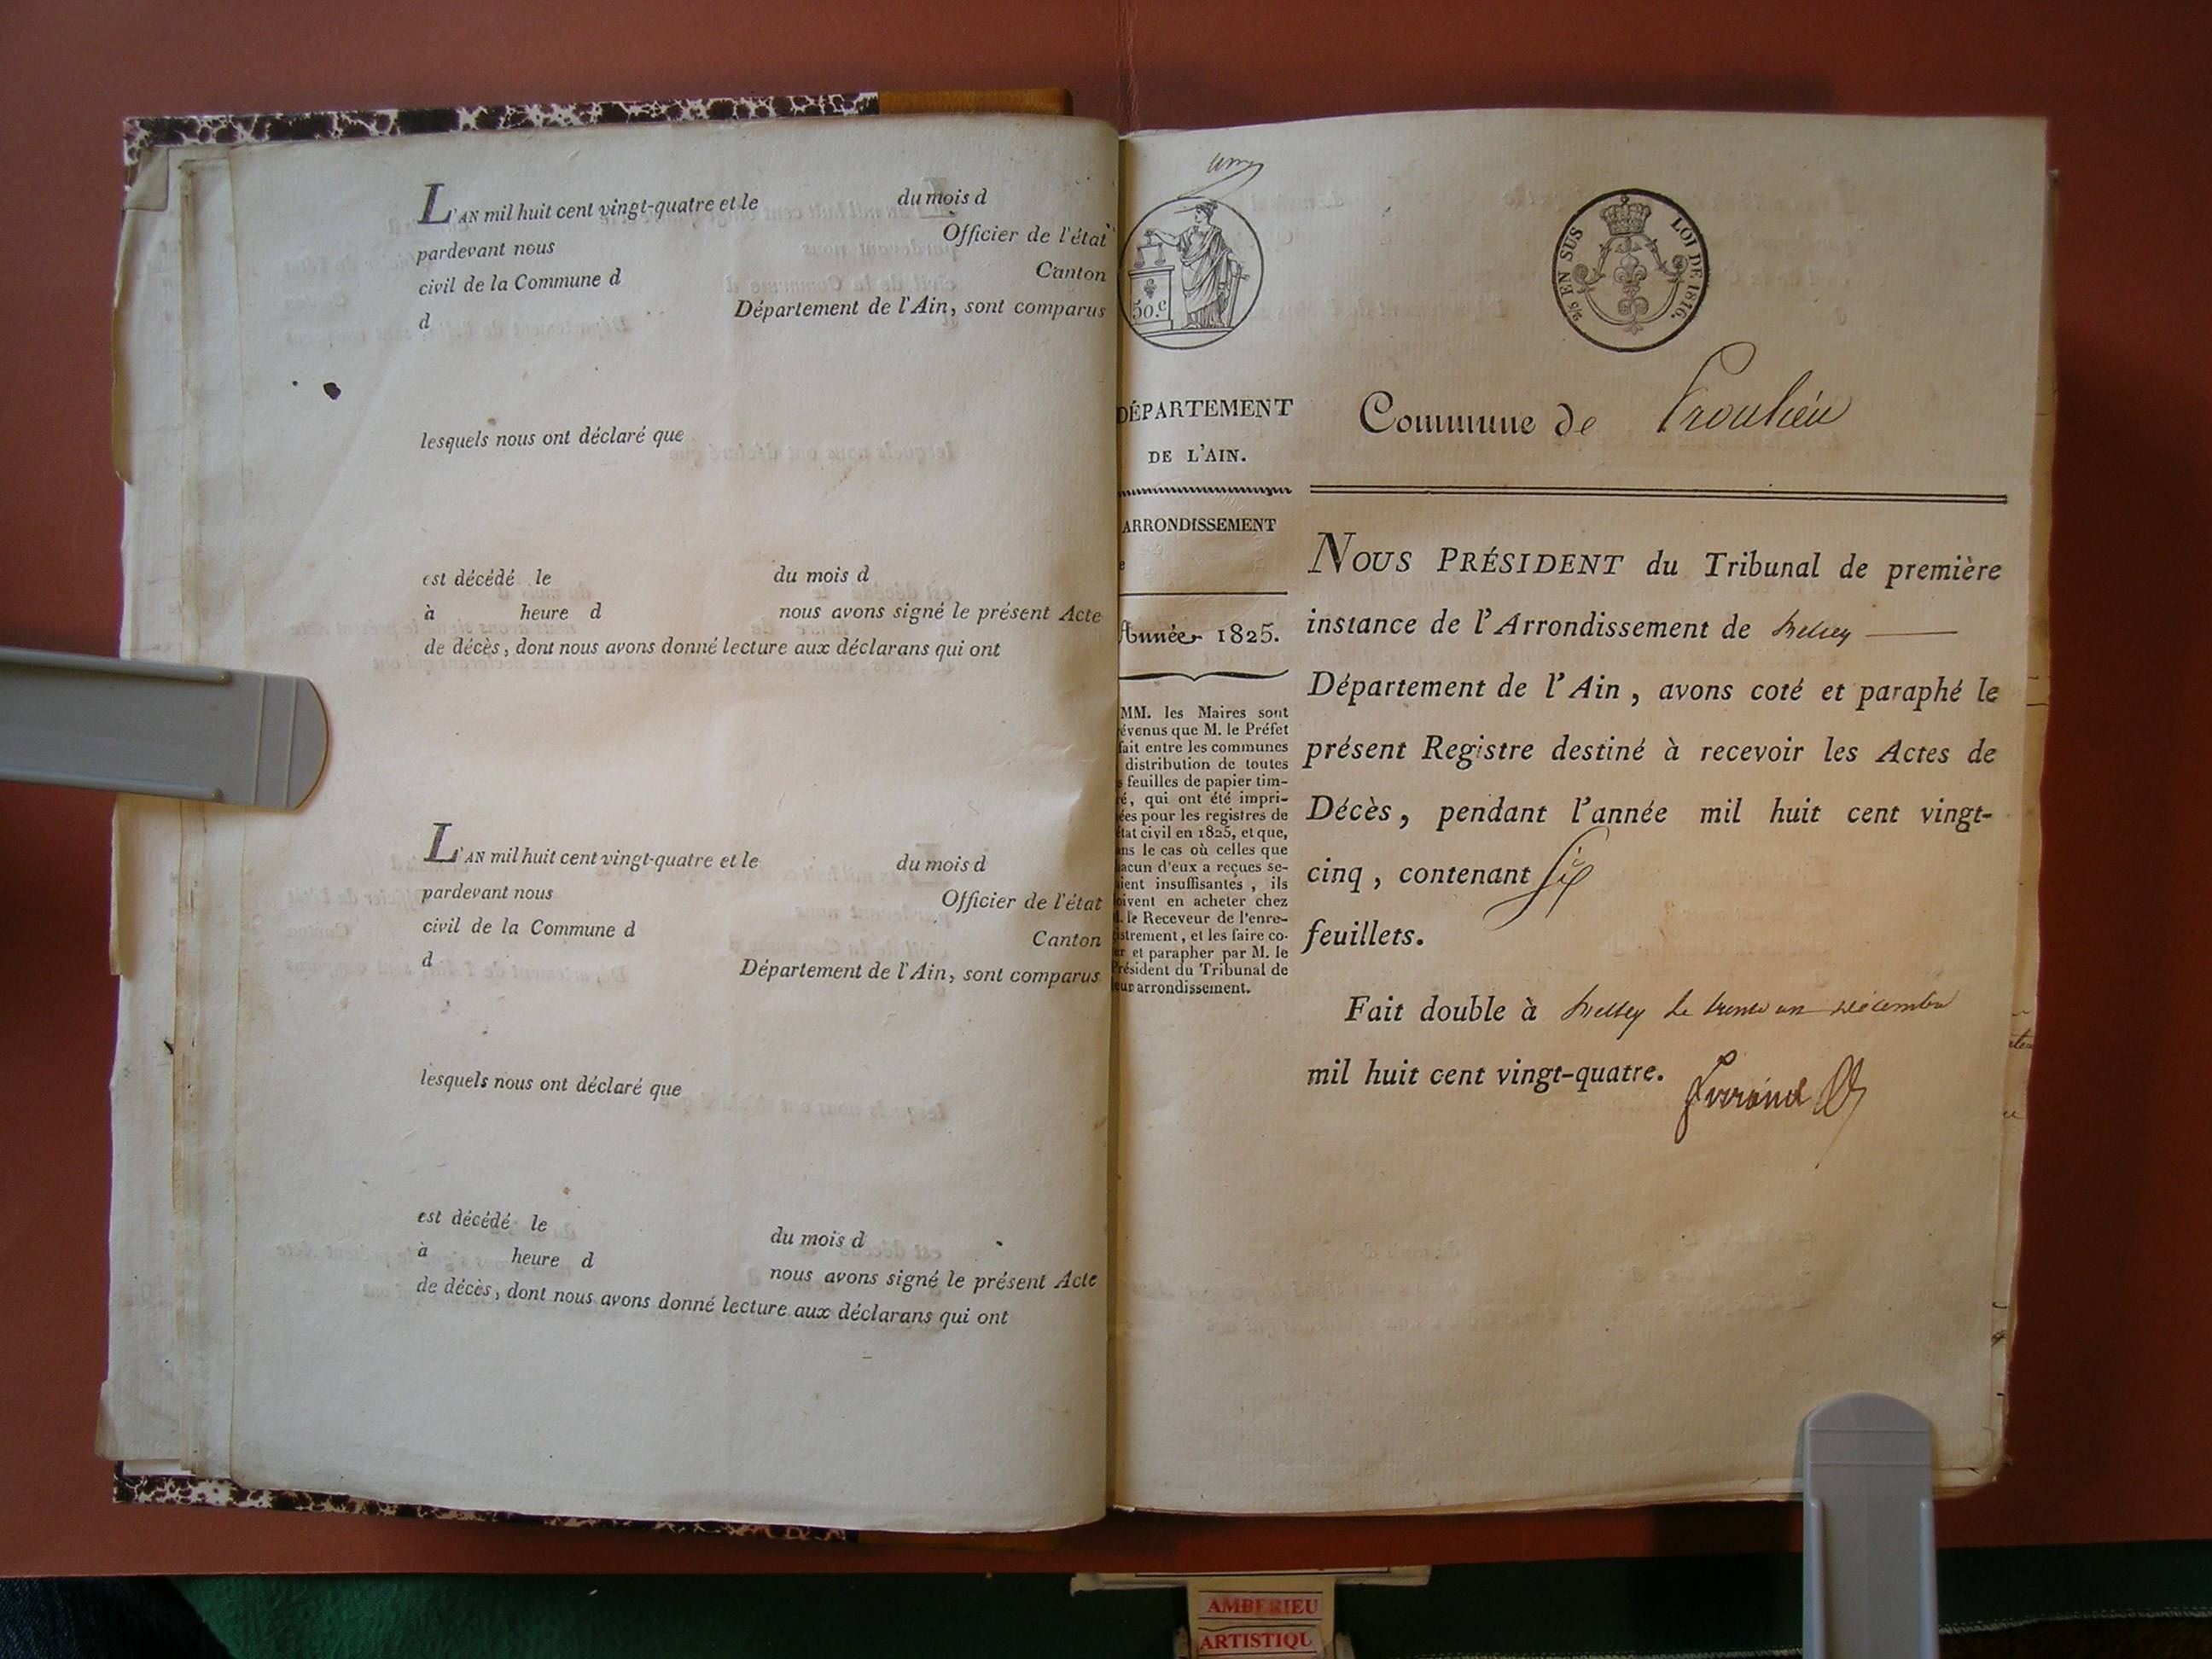 L'AN mil huit cent vingt-quatre et le du mois d
pardevant nous Officier de l'état
civil de la Commune d Canton
d Département de l'Ain, sont comparus
lesquels nous ont déclaré que
est décédé le du mois d
à heure d nous avons signé le présent Acte
de décès, dont nous avons donné lecture aux déclarans qui ont
L'AN mil huit cent vingt-quatre et le du mois d
pardevant nous Officier de l'état
civil de la Commune d Canton
d Département de l'Ain, sont comparus
lesquels nous ont déclaré que
est décédé le du mois d
à heure d nous avons signé le présent Acte
de décès, dont nous avons donné lecture aux déclarans qui ont
50.c
EN SUS LOI DE 1816.
DÉPARTEMENT
DE L'AIN.
ARRONDISSEMENT
e
Année 1825.
MM. les Maires sont
évenus que M. le Préfet
fait entre les communes
distribution de toutes
s feuilles de papier tim-
é, qui ont été impri-
ées pour les registres de
état civil en 1825, et que,
ns le cas où celles que
acun d'eux a reçues se-
aient insuffisantes, ils
oivent en acheter chez
. le Receveur de l'enre-
istrement, et les faire co-
er et parapher par M. le
Président du Tribunal de
eur arrondissement.
Commune de Proulieu
NOUS PRÉSIDENT du Tribunal de première
instance de l'Arrondissement de Belley
Département de l'Ain, avons coté et paraphé le
présent Registre destiné à recevoir les Actes de
Décès, pendant l'année mil huit cent vingt-
cinq, contenant Six
feuillets.
Fait double à Belley le trente un Décembre
mil huit cent vingt-quatre.
AMBERIEU
ARTISTIQU